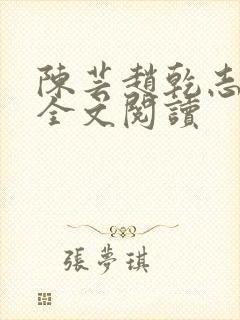 陳芸趙乾志
全文閱讀
張夢琪